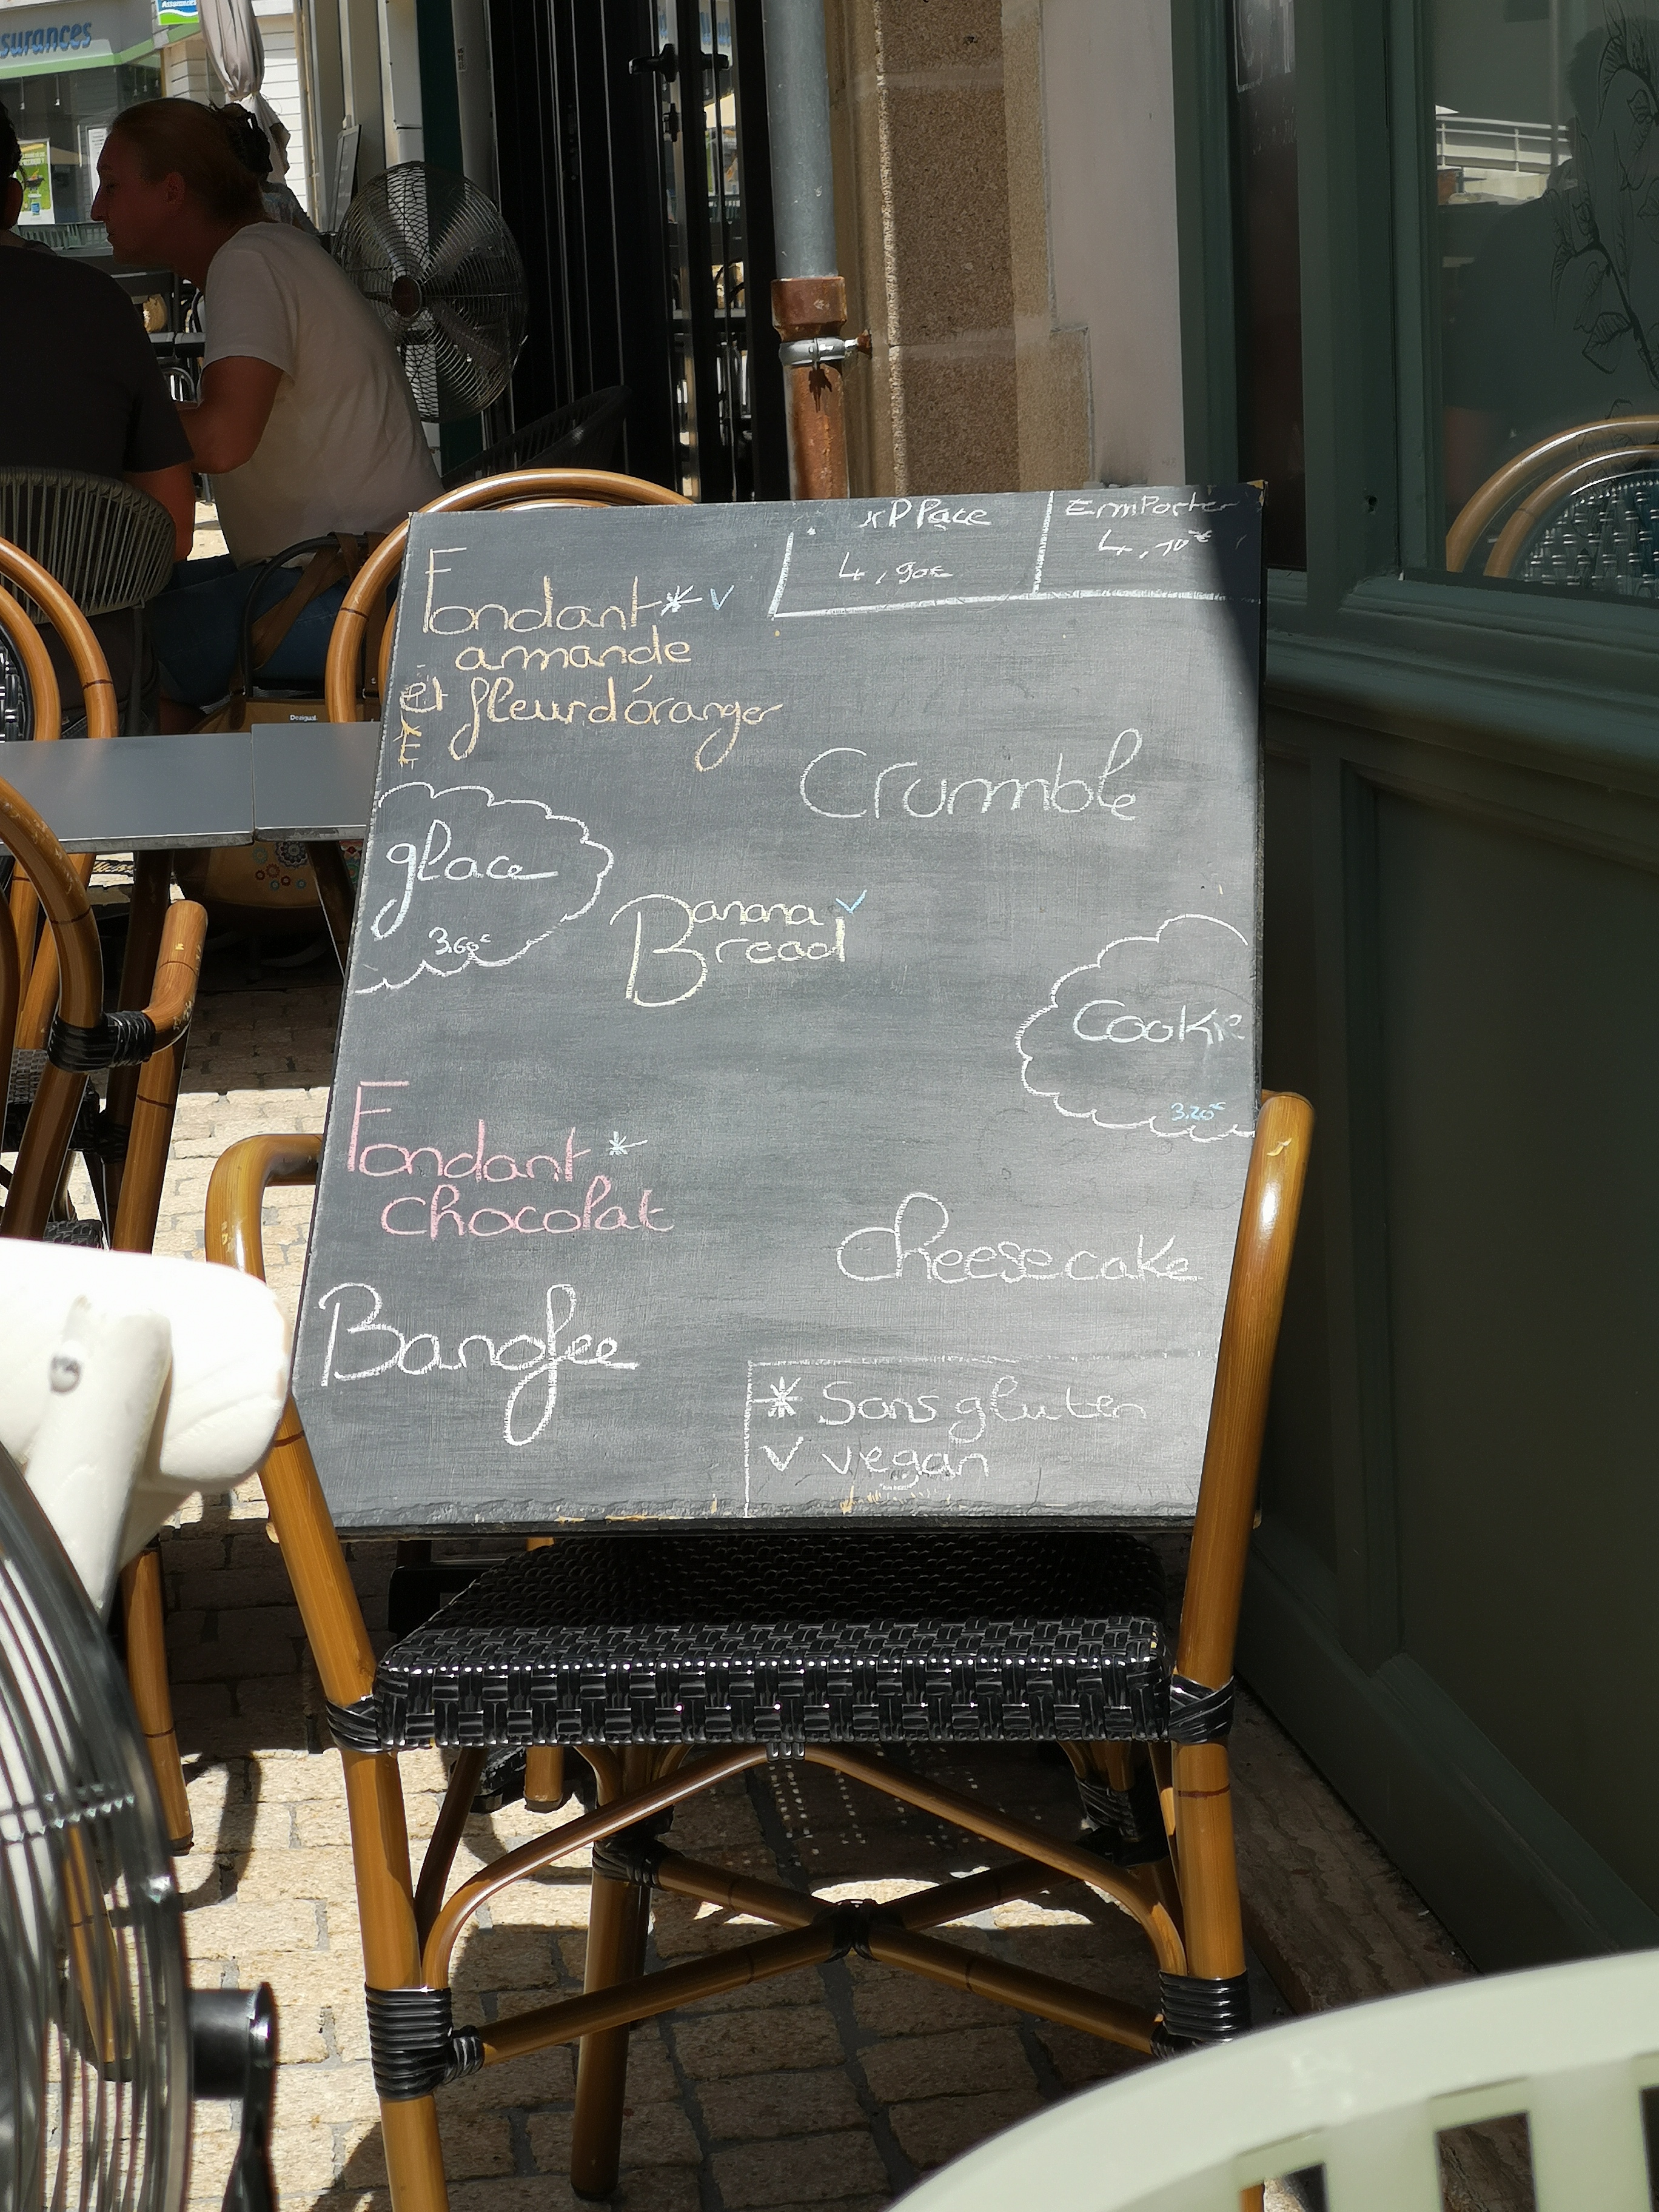 surances
sur Place
Emporter
4,90€
4,10€
Fondant * V
amande
et fleur d'oranger
Crumble
glace
3.60€
Banana V
Bread
Cookie
3.20€
Fondant *
chocolat
cheesecake
Banofee
* Sans gluten
V vegan
Desigual